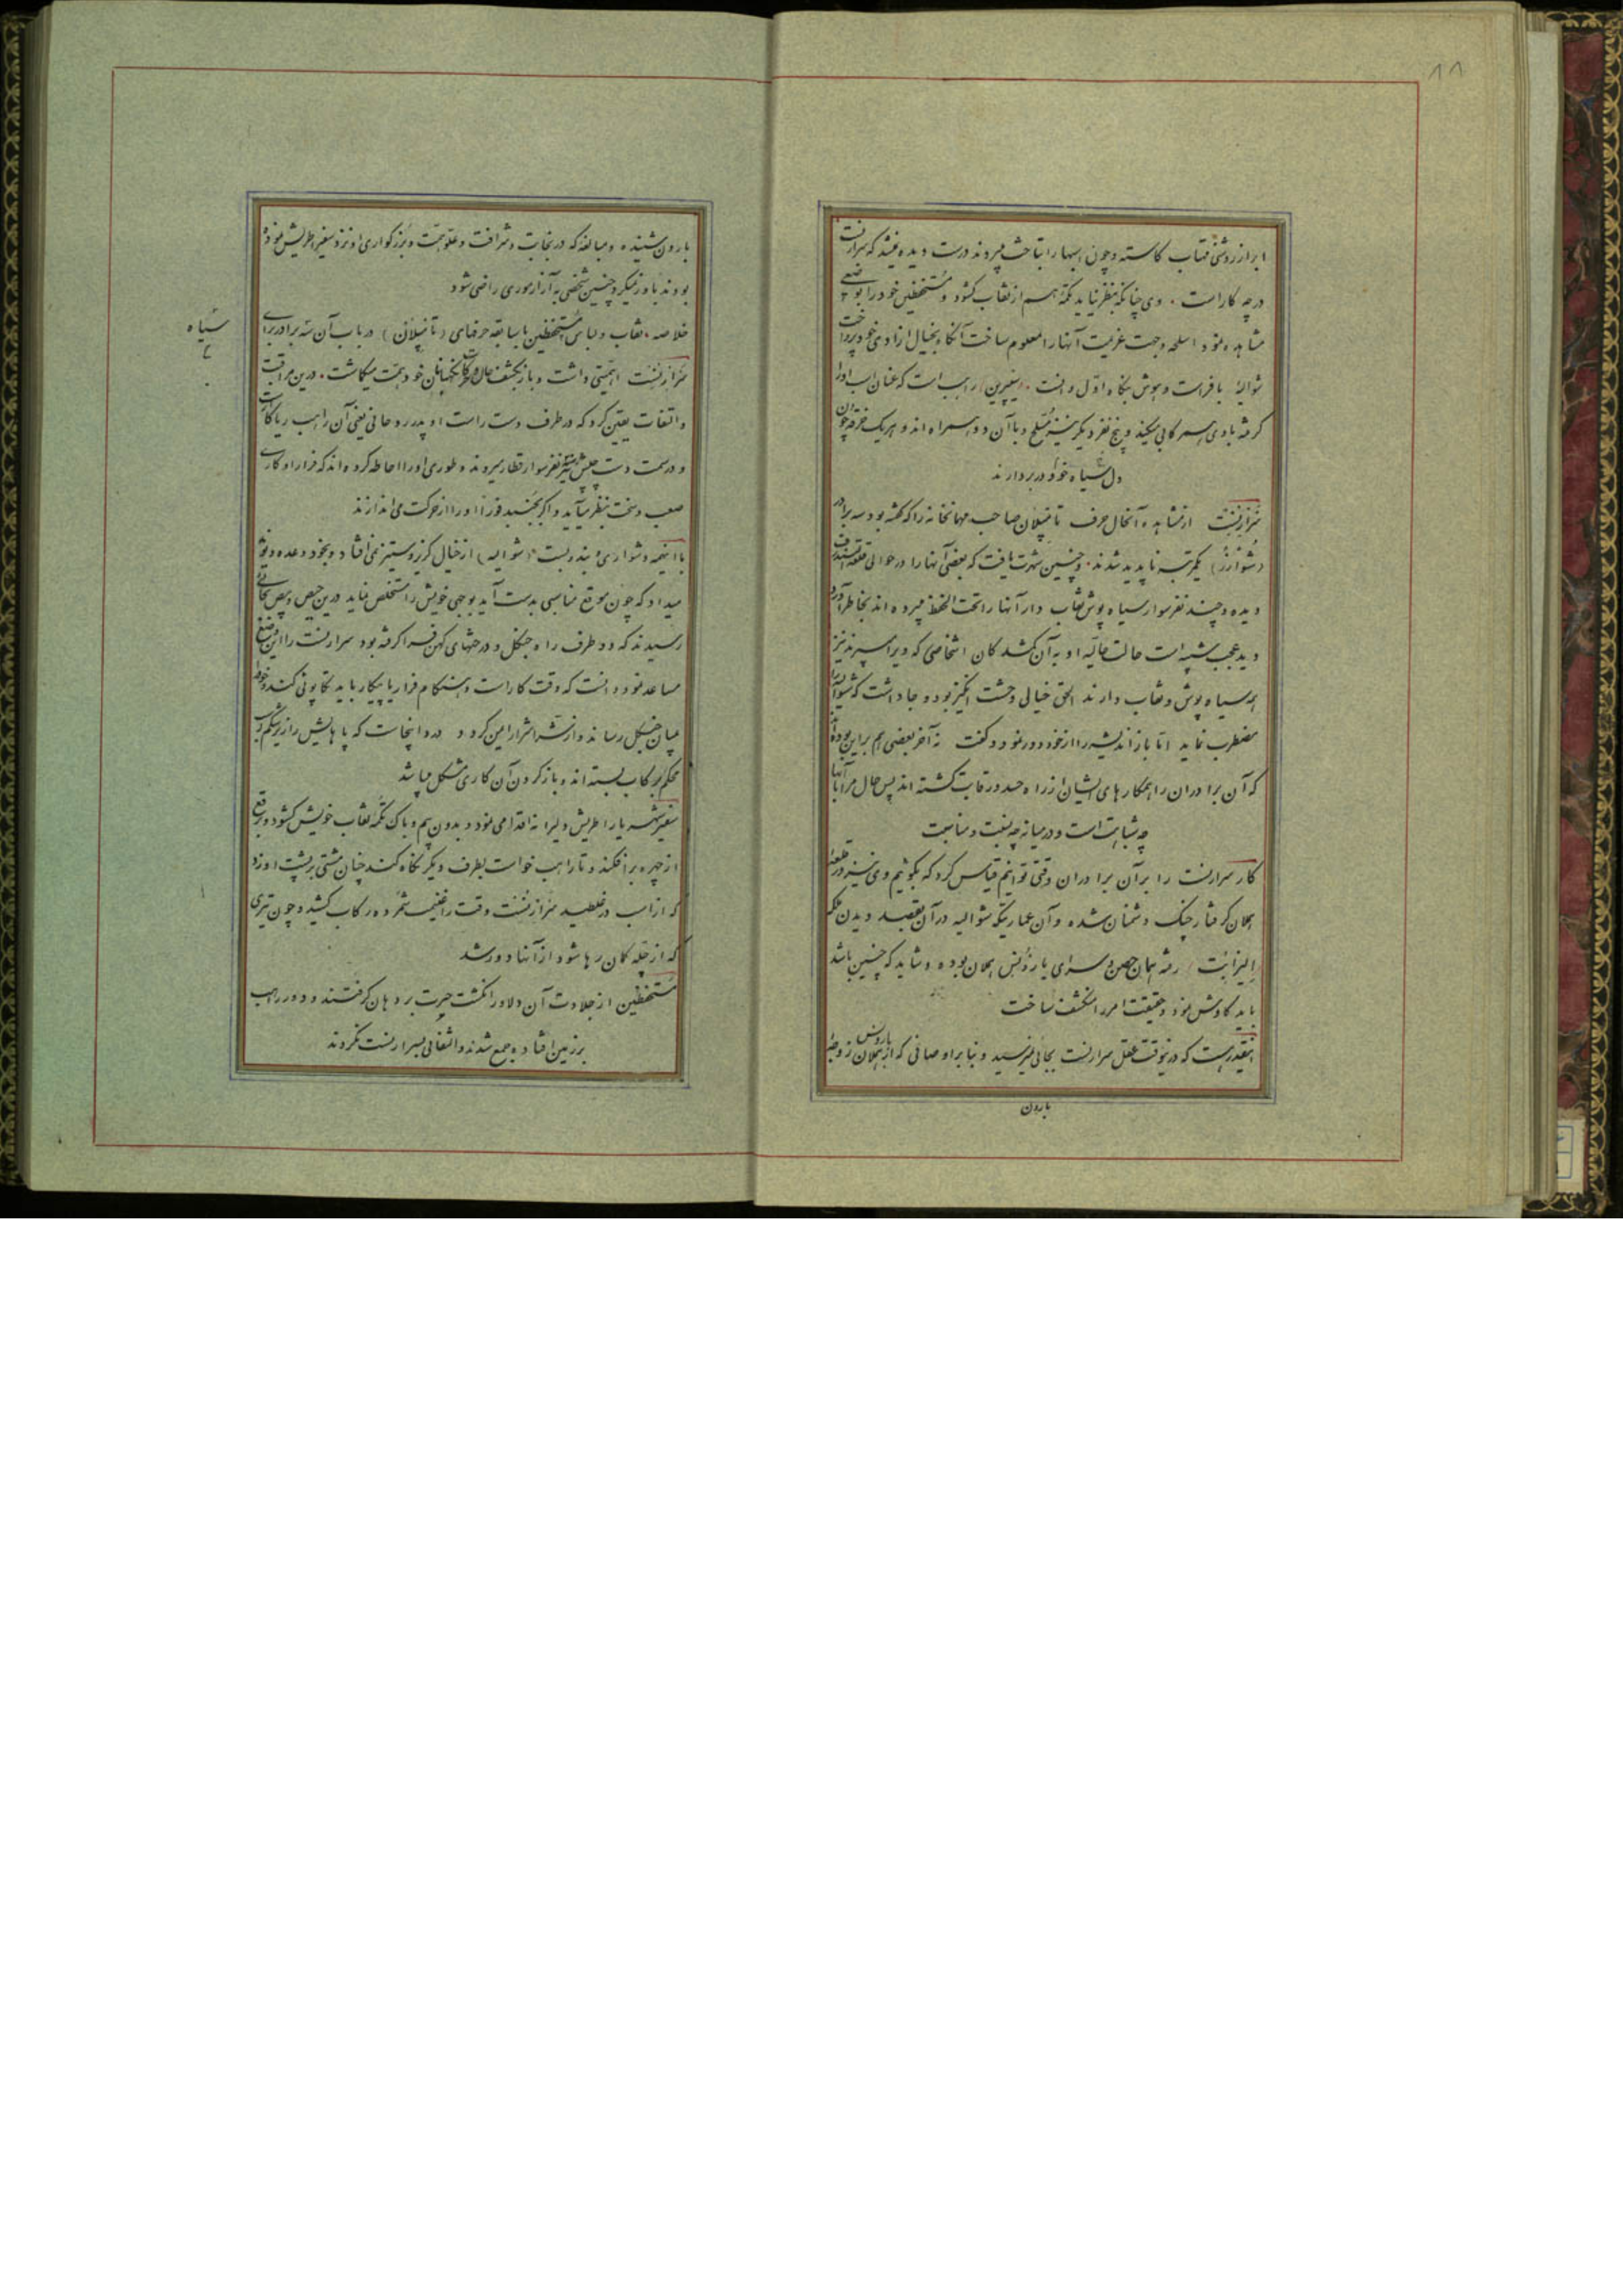 ۱۱
ابر از روشنی آفتاب کاسته و چون اسبها را بتاخت میبردند درست دیده نمیشد که سرارنست
در چه کار است . وی چنانکه بنظر نیاید تکمهٔ هم از نقاب گشود و مستحفظین خود را بوضعی
مشاهده نمود و اسلحه و جهت عزیمت آنها را معلوم ساخت آنگاه بخیال آزادی خود پرداخت
شوالیهٔ با فراست و هوش بنگاه اول دانست . راهب است که عنان اسب او را
گرفته با وی همرکابی میکند و پنج نفر دیگر نیز مسلح و با آن دو همراه اند و هر یک خرقهٔ چون
دل سیاه خود در بر دارند
سرارنست از مشاهده آنحال حرف تانپلان صاحب مهمانخانه را که گفته بود سه برادر
(شوارز) یکمرتبه ناپدید شدند . و چنین شهرت یافت که بعضی آنها را در حوالی قلعه
دیده و چند نفر سوار سیاه پوش نقاب دار آنها را تحت الحفظ میبرده اند بخاطر آورد
دید عجب شبیه است حالت حالیه او به آن گمشدگان اشخاصی که ویرا میبرند نیز
همه سیاه پوش و نقاب دارند الحق خیالی وحشت انگیز بود و جا داشت که شوالیه را
مضطرب نماید اما باز اندیشه را از خود دور نمود و گفت نه آخر بعضی هم براین بوده اند
که آن برادران را همکارهای ایشان از راه حسد و رقابت کشته اند پس حال مرا با آنها
چه شباهت است و در میانه چه نسبت و مناسبت
کار سرارنست را بر آن برادران وقتی توانیم قیاس کرد که بگوئیم وی نیز در قلعه
هملان گرفتار چنگ دشمنان شده و آن عماریکه شوالیه در آن بقصد دیدن ملکه
(الیزابت) رفته همان حصن و سرای بارونس هملان بوده و شاید که چنین باشد
باید کاوش نمود و حقیقت امر را منکشف ساخت
اینقدر هست که در نیوقت عقل سرارنست بجائی نمیرسید و بنا بر اوصافی که از بارونس هملان زوجهٔ
بارون
بارون شنیده و مبالغه که در نجابت و شرافت و علو همت و بزرگواری او نزد سفیر اطریش نموده
بودند باور نمیکرد چنین شخصی به آزار موری راضی شود
خلاصه . نقاب و لباس مستحفظین با سابقه حرفهای (تانپلان) در باب آن سه برادر برای
سیاه
سرارنست اهمیتی داشت و باز بکشف حال و حرکات نگهبانان خود همت میگماشت . درین مراقبت
و التفات یقین کرد که در طرف دست راست او پدر روحانی یعنی آن راهب ریاکار است
و در سمت دست چپش نیز نفر سوار قطار میروند و طوری او را احاطه کرده اند که فرار او کاری
صعب و سخت بنظر میآید و اگر بجنبد فورا او را از حرکت می اندازند
با اینهمه دشواری و بند و بست (شوالیه) از خیال گریز و ستیز نمی افتاد و بخود وعده و نوید
میداد که چون موقع مناسبی بدست آید بوجهی خویش را مستخلص نماید درین حیص و بیص بجائی
رسیدند که دو طرف راه جنگل و درختهای کهن فرا گرفته بود سرارنست را این وضع
مساعد نمود دانست که وقت کار است و هنگام فرار یا پیکار باید تکاپوئی کند و خود را
میان جنگل رساند و از شر اشرار امن گردد درد اینجاست که پاهایش را از زیر شکم اسب
محکم برکاب بسته اند و باز کردن آن کاری مشکل میباشد
سفیر شهریار اطریش دلیرانه اقدامی نمود و بدون بیم و باک تکمهٔ نقاب خویش گشود و برقع
از چهره برافکند و تا راهب خواست بطرف دیگر نگاه کند چنان مشتی بر پشت او زد
که از اسب در غلطید سرارنست وقت را غنیمت شمرده رکاب کشید و چون تیری
که از چله کمان رها شود از آنها دور شد
مستحفظین از جلادت آن دلاور انگشت حیرت بر دهان گرفتند و دور راهب
بر زمین افتاده جمع شدند و التفاتی بسرارنست نکردند